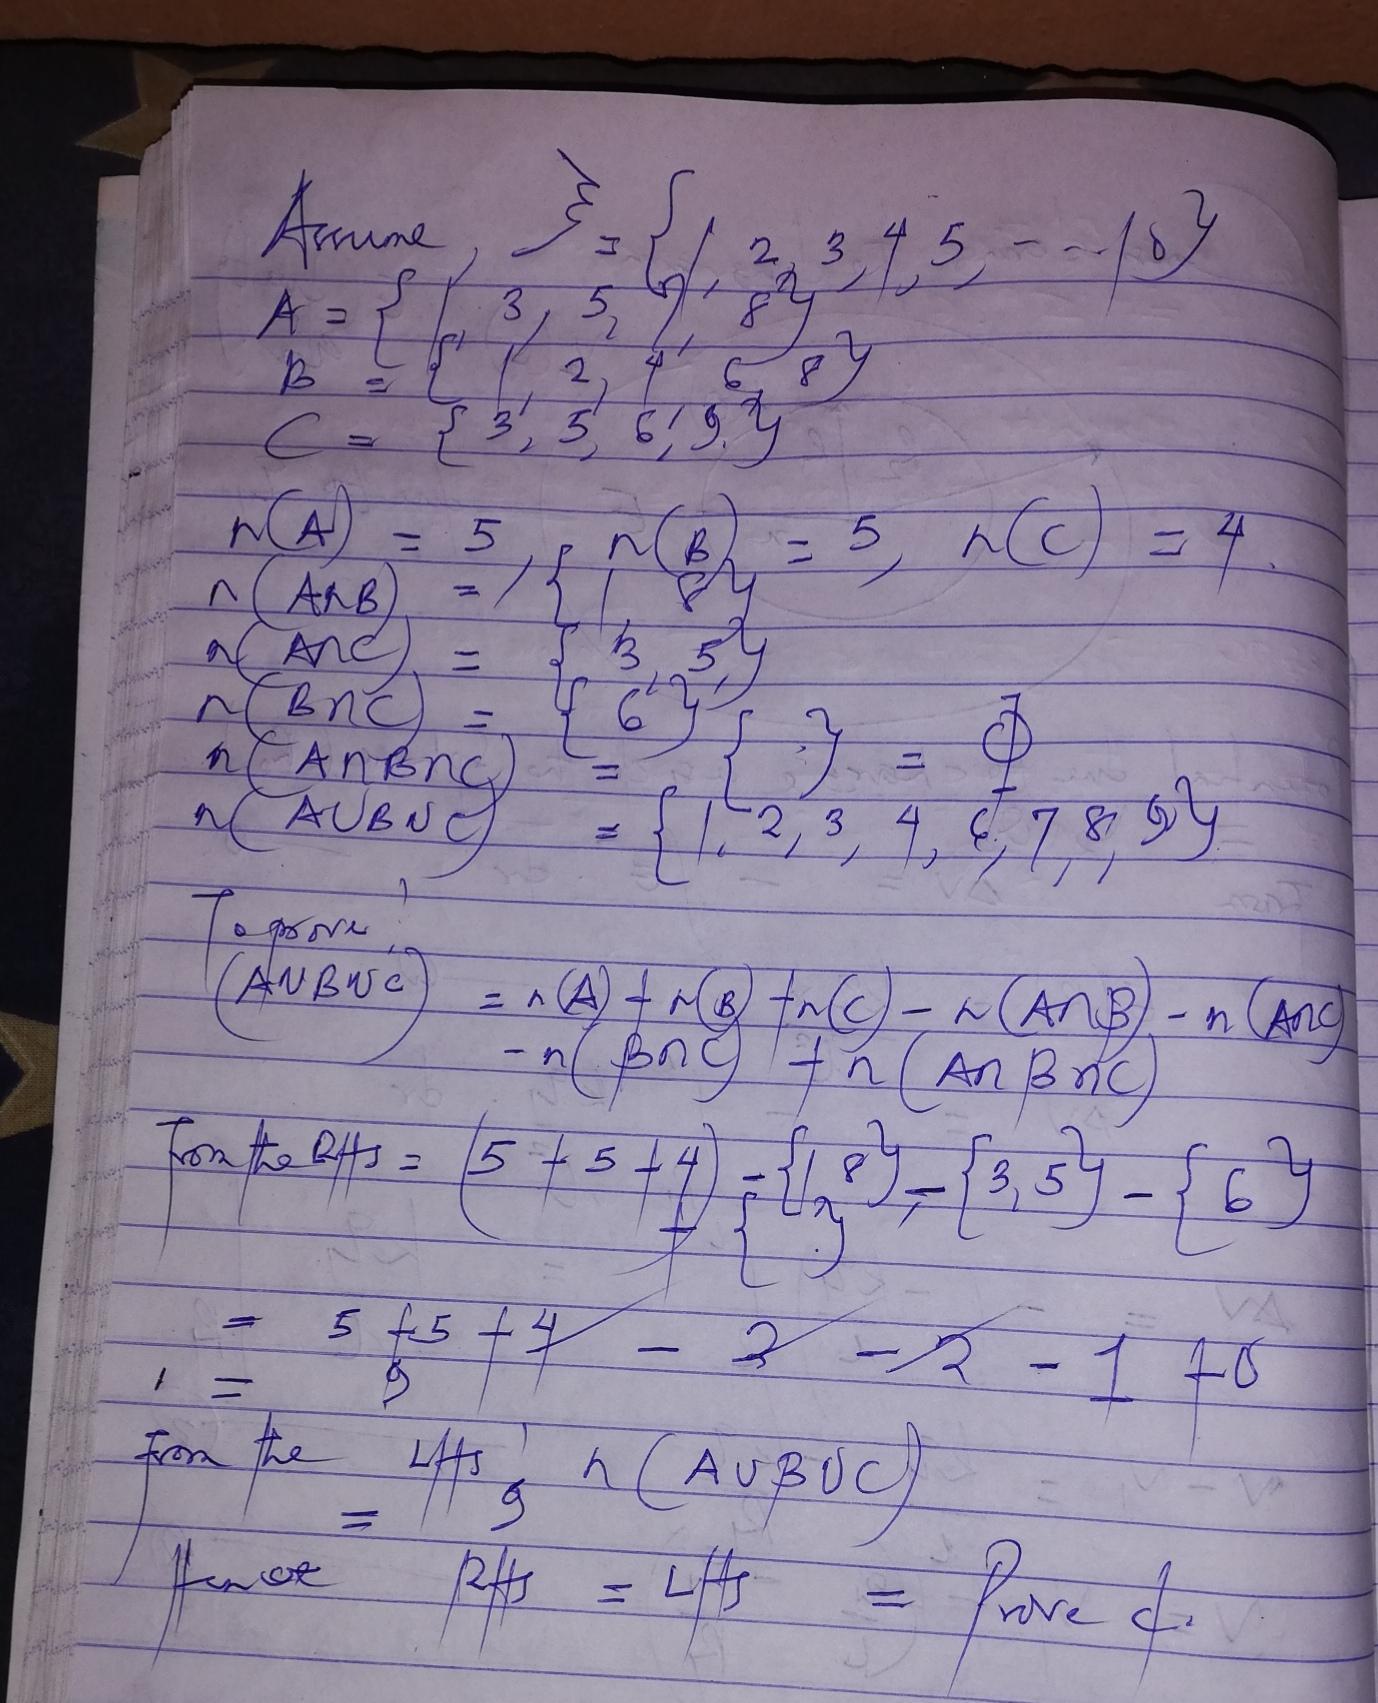 Assume, ξ = {1, 2, 3, 4, 5, - - - 10}
A = {1, 3, 5, 7, 8}
B = {1, 2, 4, 6, 8}
C = {3, 5, 6, 9}
n(A) = 5, n(B) = 5, n(C) = 4.
n(A∩B) = {1, 8}
n(A∩C) = {3, 5}
n(B∩C) = {6}
n(A∩B∩C) = { } = ϕ
n(A∪B∪C) = {1, 2, 3, 4, 6, 7, 8, 9}
To prove;
(A∪B∪C) = n(A) + n(B) + n(C) - n(A∩B) - n(A∩C)
- n(B∩C) + n(A∩B∩C)
From the RHS = (5 + 5 + 4) - {1, 8} - {3, 5} - {6}
+ { }
= 5 + 5 + 4 - 2 - 2 - 1 + 0
= 9
From the LHS, n(A∪B∪C)
= 9
Hence RHS = LHS = Proved.